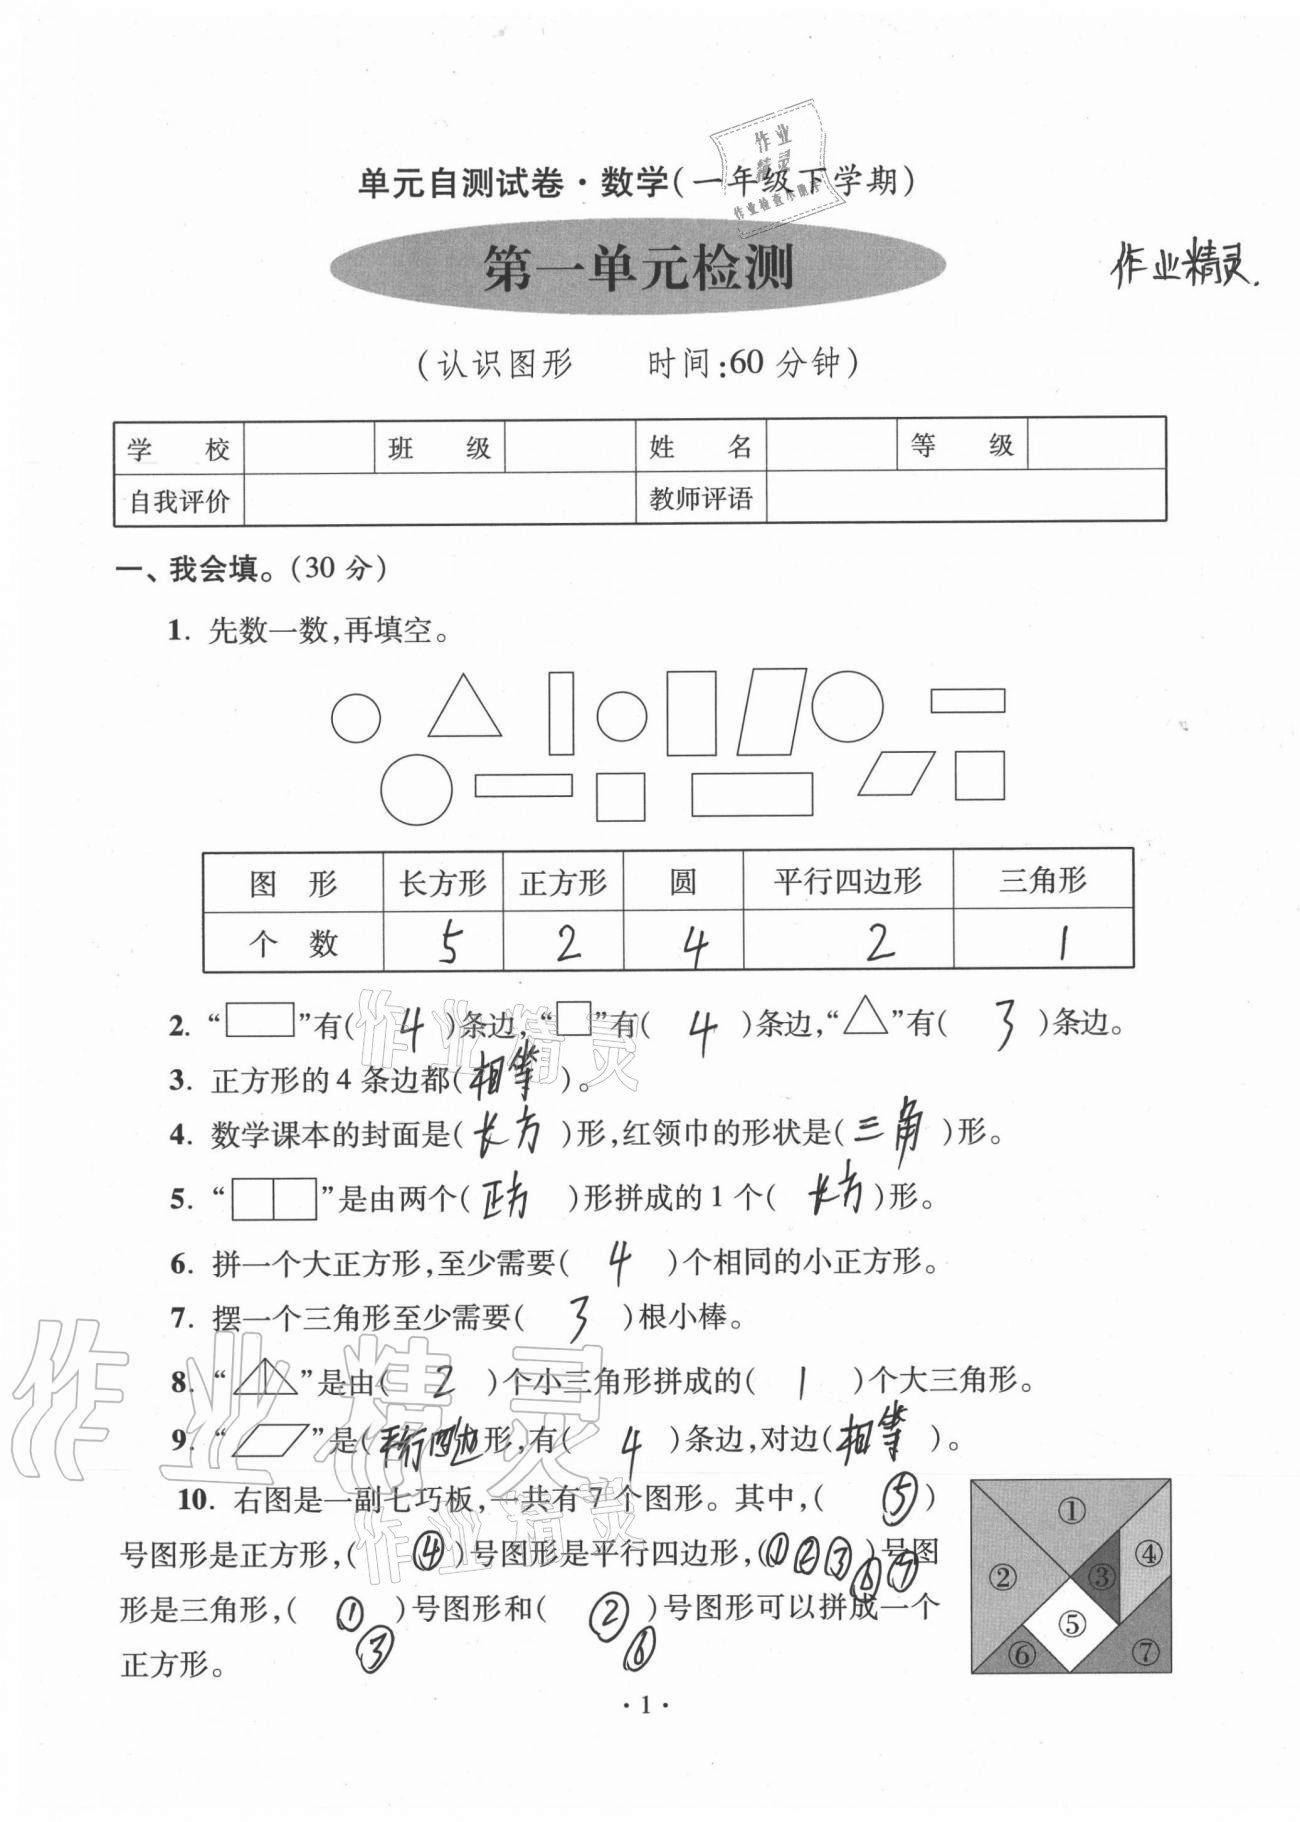 作业
精灵
作业检查小助手
单元自测试卷·数学(一年级下学期)
第一单元检测
作业精灵.
(认识图形 时间:60分钟)
学 校 班 级 姓 名 等 级
自我评价 教师评语
一、我会填。(30分)
1. 先数一数,再填空。
图 形 长方形 正方形 圆 平行四边形 三角形
个 数 5 2 4 2 1
2. “ ”有( 4 )条边,“ ”有( 4 )条边,“ ”有( 3 )条边。
3. 正方形的4条边都( 相等 )。
4. 数学课本的封面是( 长方 )形,红领巾的形状是( 三角 )形。
5. “ ”是由两个( 正方 )形拼成的1个( 长方 )形。
6. 拼一个大正方形,至少需要( 4 )个相同的小正方形。
7. 摆一个三角形至少需要( 3 )根小棒。
8. “ ”是由( 2 )个小三角形拼成的( 1 )个大三角形。
9. “ ”是(平行四边形,有( 4 )条边,对边(相等 )。
10. 右图是一副七巧板,一共有7个图形。其中,( ⑤ )
号图形是正方形,( ④ )号图形是平行四边形,(①②③⑥⑦)号图
形是三角形,( ① )号图形和( ② )号图形可以拼成一个
③ ⑥
正方形。
① ② ③ ④ ⑤ ⑥ ⑦
作业精灵
作业精灵
作业精灵
·1·